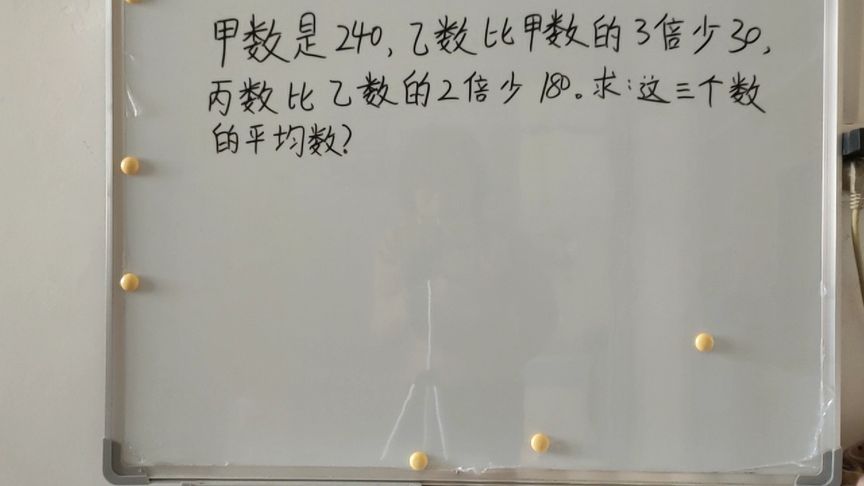 甲数是240,乙数比甲数的3倍少30,
丙数比乙数的2倍少180。求:这三个数
的平均数?